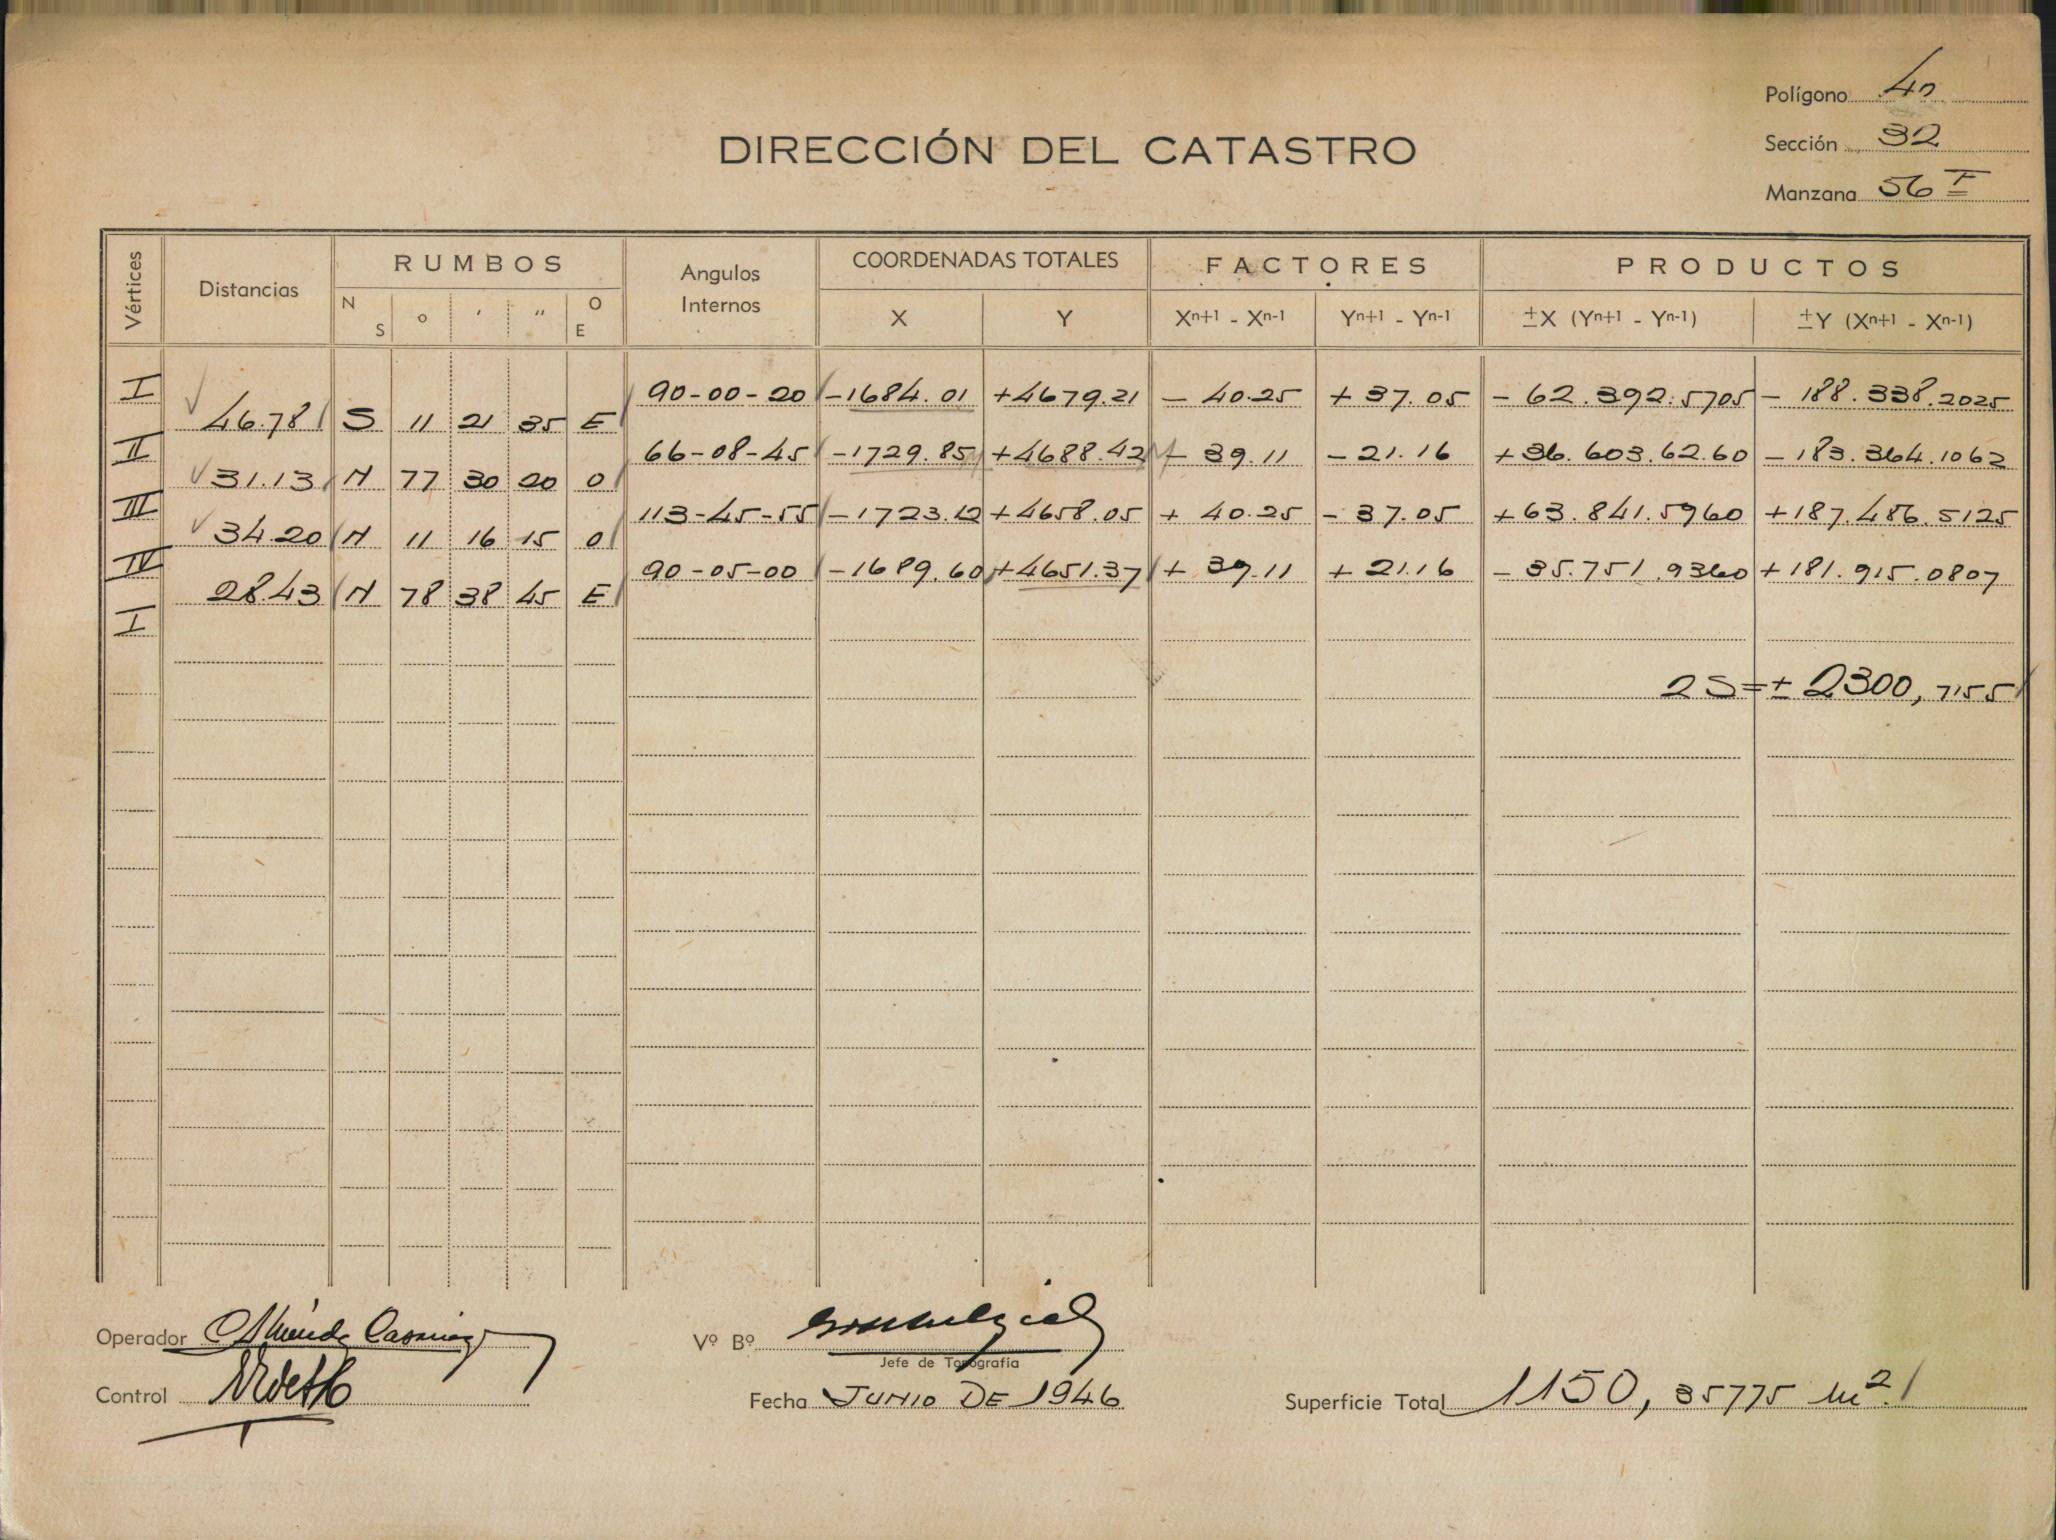 Polígono 4n
Sección 32
DIRECCIÓN DEL CATASTRO
Manzana 56 I
Vértices Distancias RUMBOS Angulos Internos COORDENADAS TOTALES FACTORES PRODUCTOS
N S o ' " O E X Y Xn+1 - Xn-1 Yn+1 - Yn-1 ±X (Yn+1 - Yn-1) ±Y (Xn+1 - Xn-1)
I 90-00-20 -1684.01 +4679.21 - 40.25 + 37.05 - 62.392.5705 - 188.338.2025
46.78 S 11 21 35 E
II 66-08-45 -1729.85 +4688.42 - 39.11 - 21.16 +36.603.62.60 - 183.364.1062
31.13 N 77 30 20 O
III 113-45-55 -1723.12 +4658.05 + 40.25 - 37.05 +63.841.5960 +187.486.5125
34.20 N 11 16 15 O
IV 90-05-00 -1689.60 +4651.37 + 39.11 + 21.16 - 35.751.9360 +181.915.0807
28.43 N 78 38 45 E
I
2S=± 2300,7155
Operador
Vº Bº
Jefe de Topografía
Control
Fecha JUNIO DE 1946
Superficie Total 1150,35775 m2.